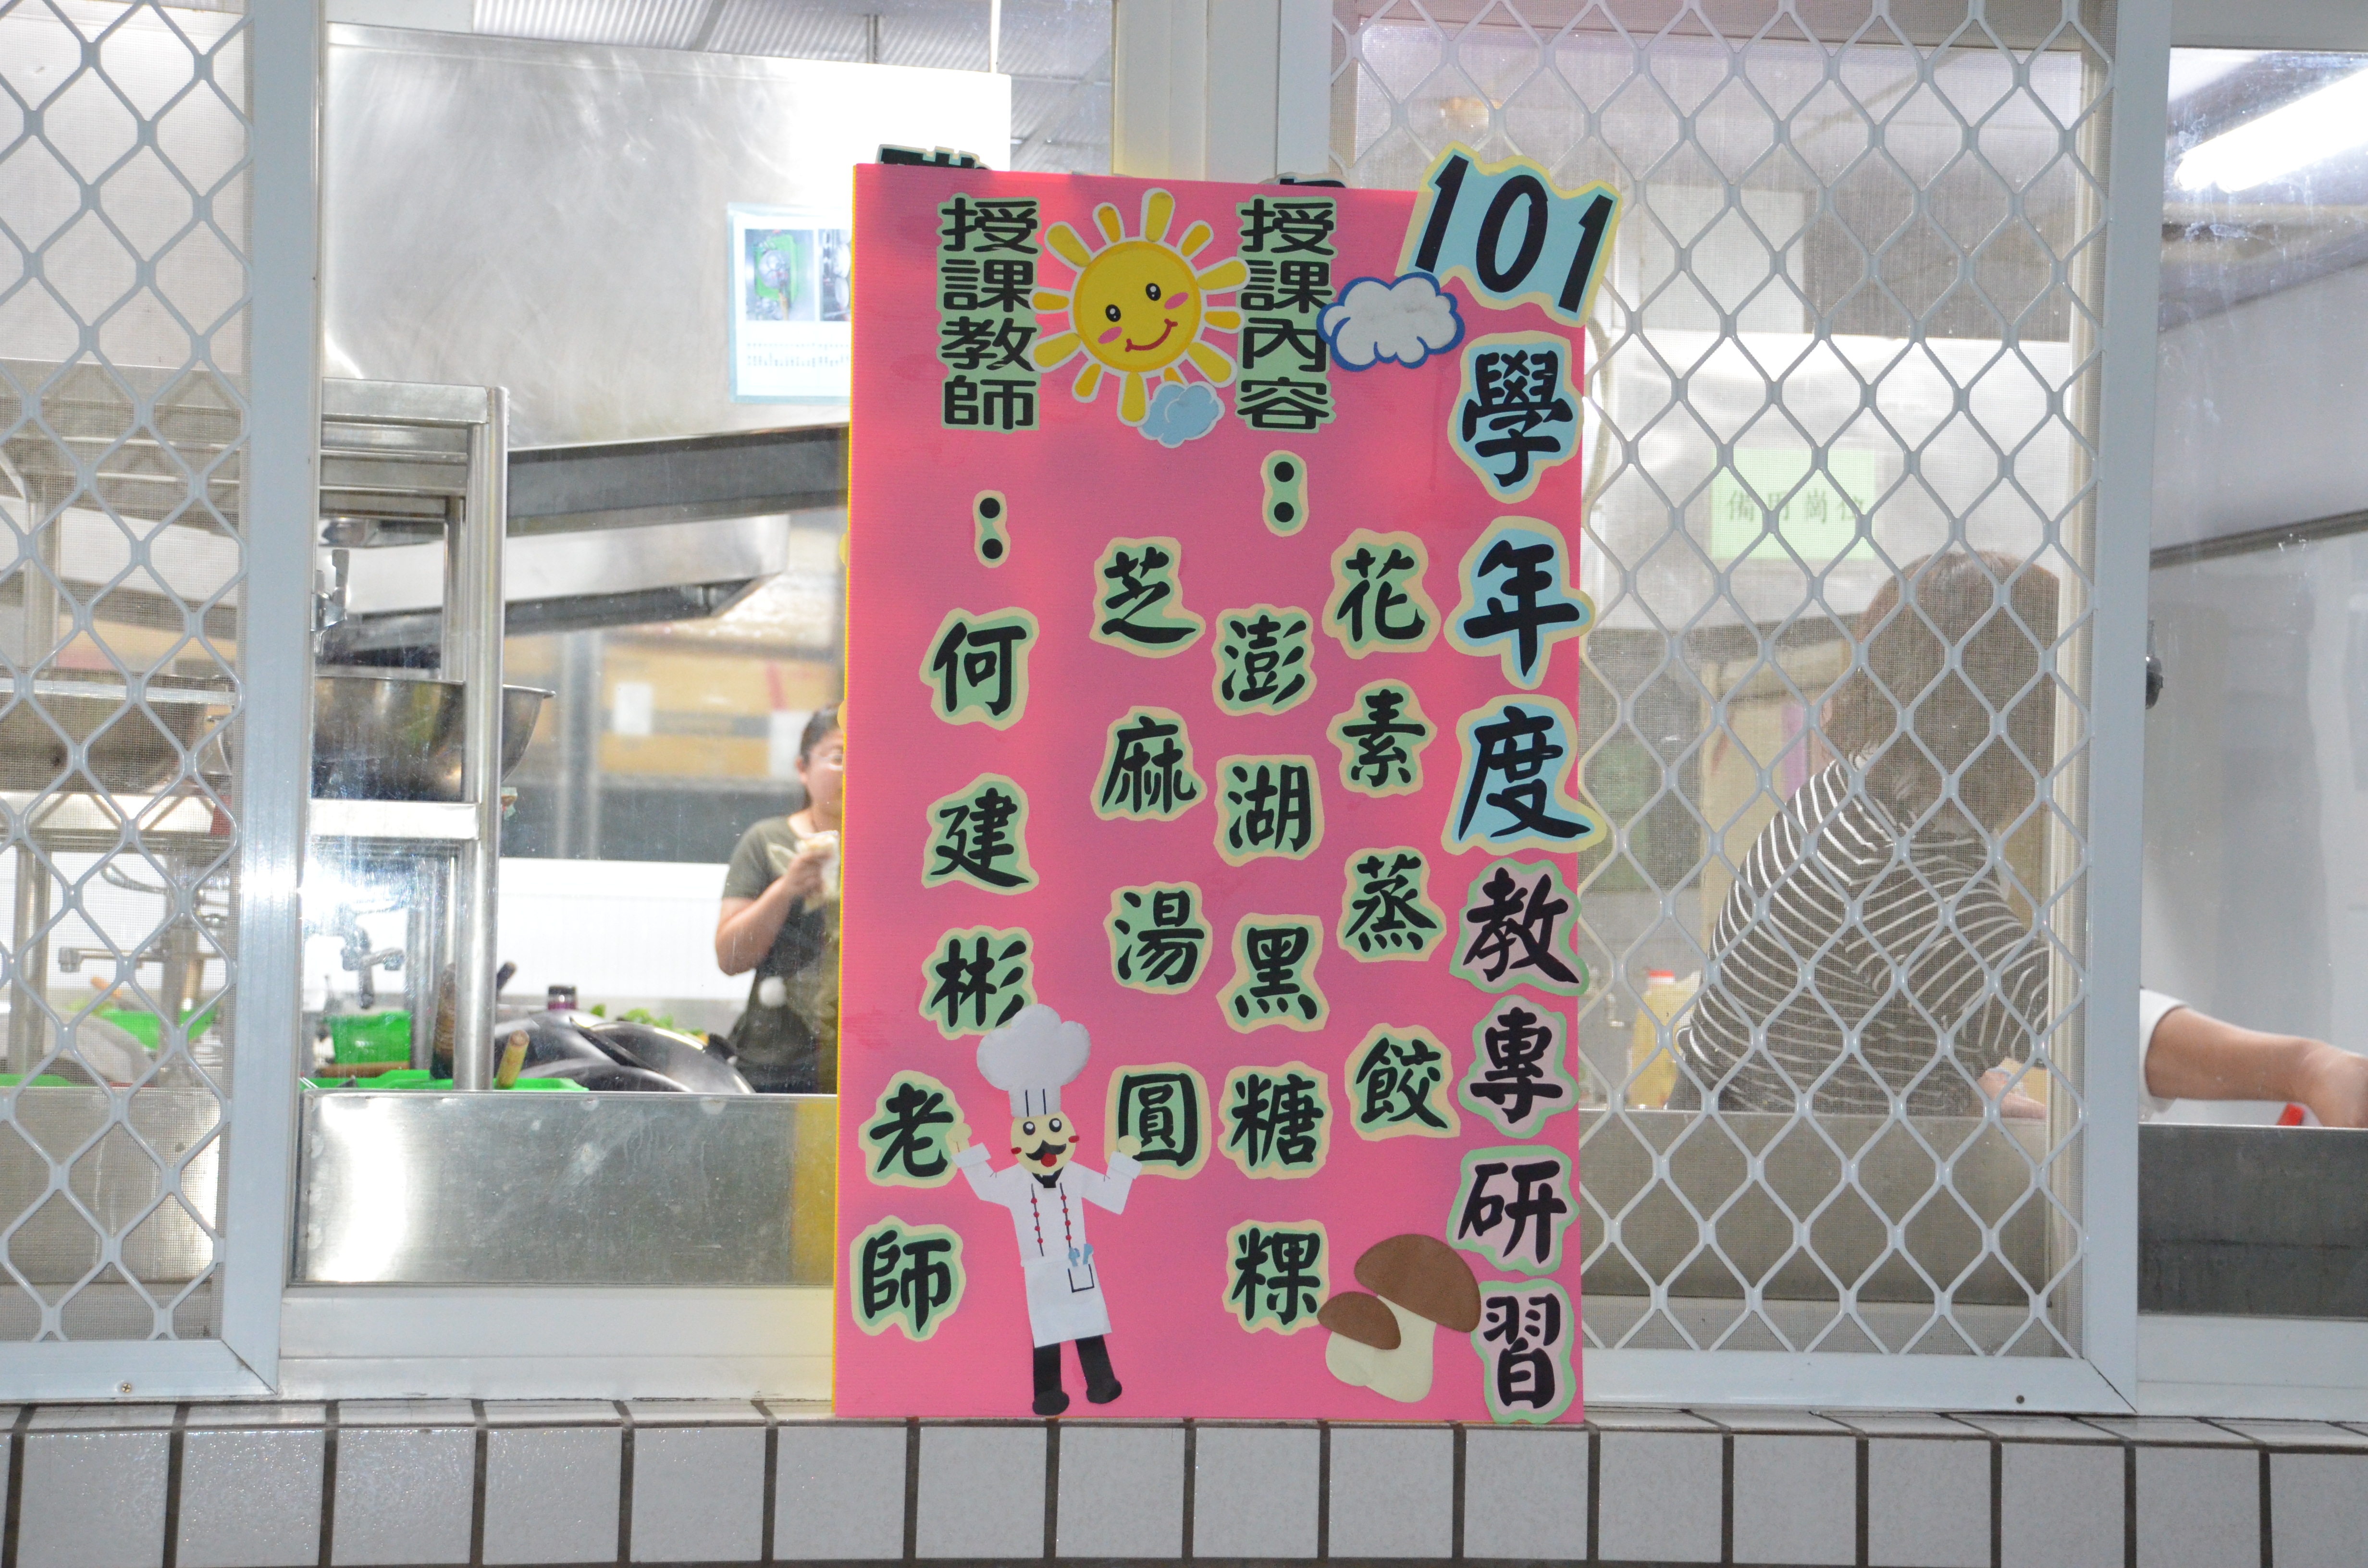 101學年度教專研習
授課內容：
花素蒸餃
澎湖黑糖粿
芝麻湯圓
授課教師：何建彬老師
備用崗位